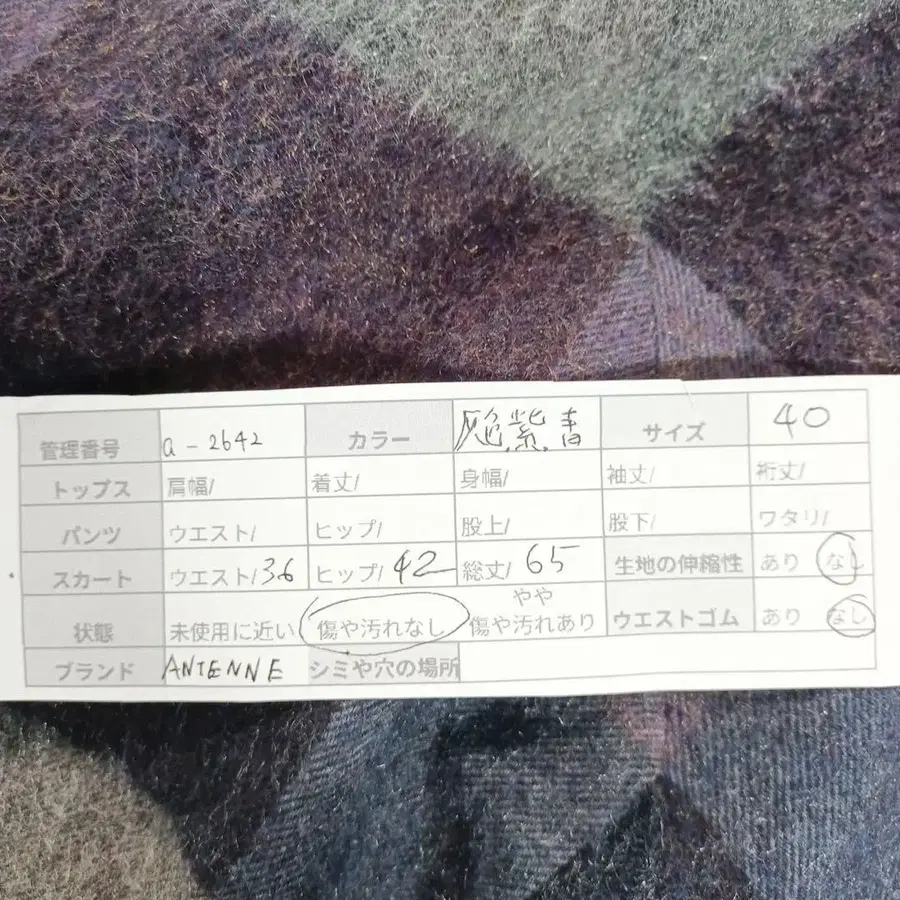 管理番号 a-2642 カラー 灰色.紫.青 サイズ 40
トップス 肩幅/ 着丈/ 身幅/ 袖丈/ 裄丈/
パンツ ウエスト/ ヒップ/ 股上/ 股下/ ワタリ/
スカート ウエスト/36 ヒップ/42 総丈/65 生地の伸縮性 あり なし
状態 未使用に近い 傷や汚れなし やや傷や汚れあり ウエストゴム あり なし
ブランド ANTENNE シミや穴の場所